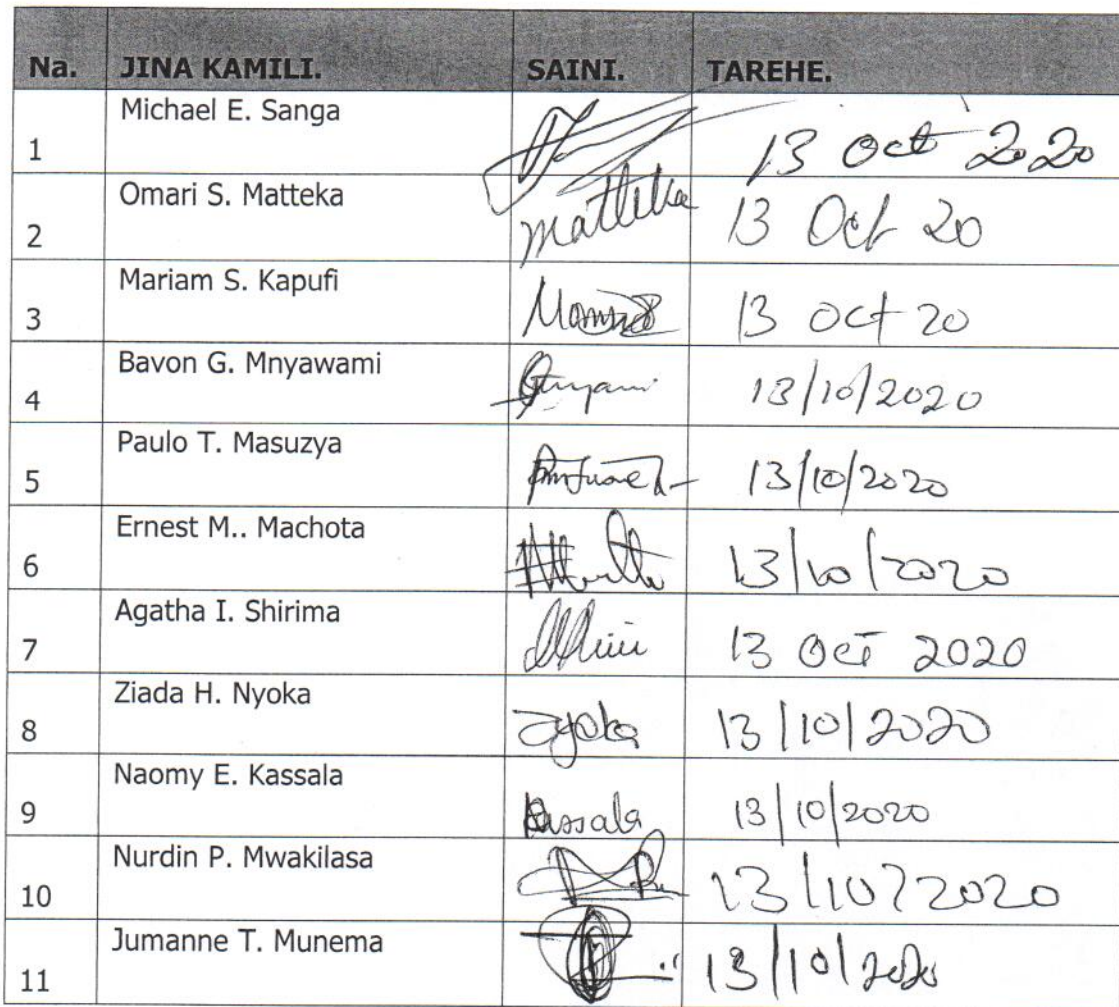 Na. JINA KAMILI. SAINI. TAREHE.
1 Michael E. Sanga 13 Oct 2020
2 Omari S. Matteka Matteka 13 Oct 20
3 Mariam S. Kapufi 13 Oct 20
4 Bavon G. Mnyawami 13/10/2020
5 Paulo T. Masuzya 13/10/2020
6 Ernest M.. Machota 13/10/2020
7 Agatha I. Shirima 13 Oct 2020
8 Ziada H. Nyoka 13/10/2020
9 Naomy E. Kassala Kassala 13/10/2020
10 Nurdin P. Mwakilasa 13/10/2020
11 Jumanne T. Munema 13/10/2020